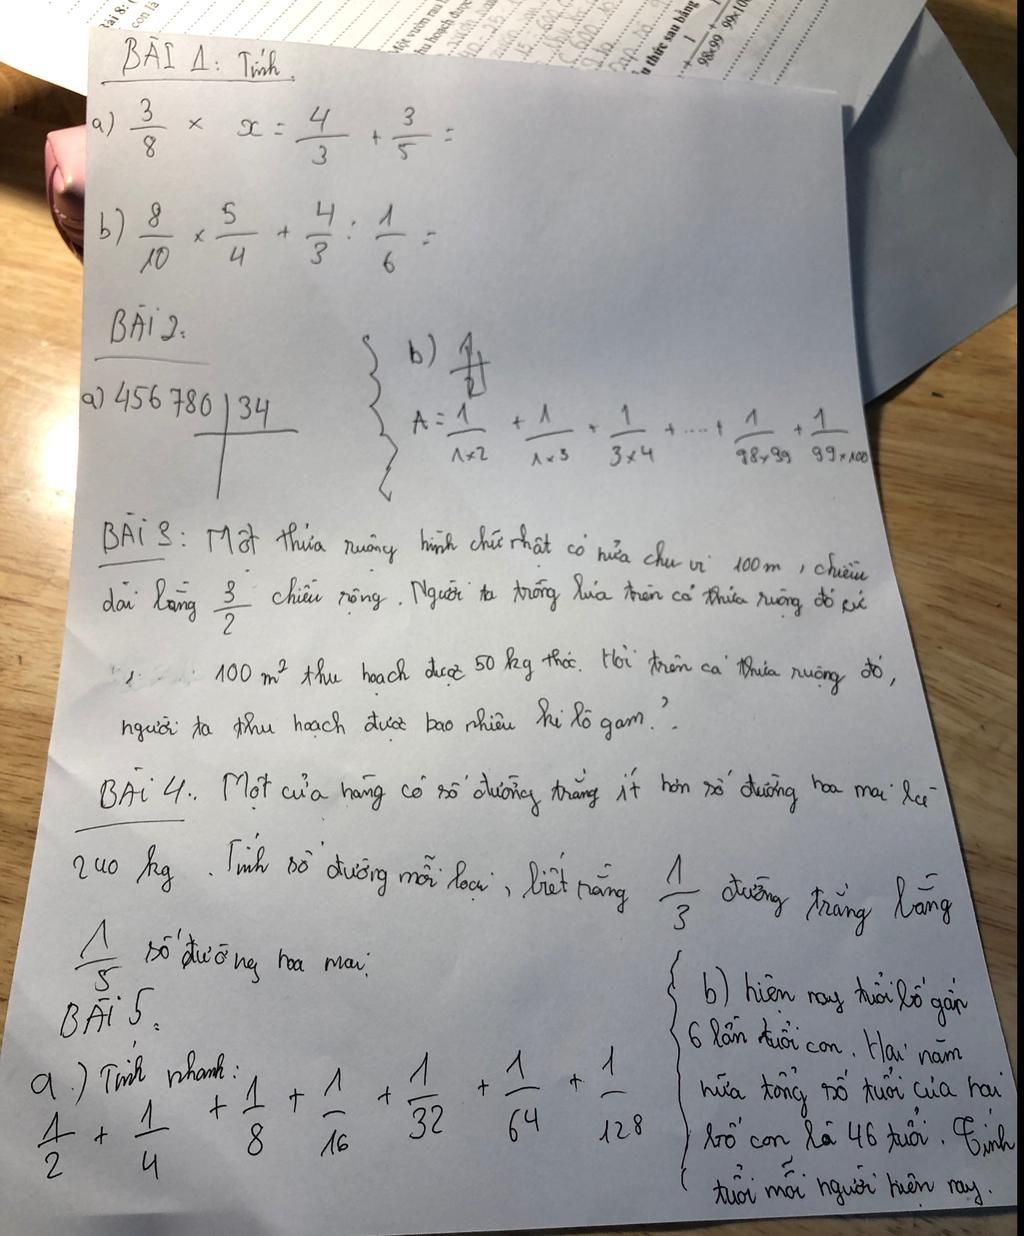 BÀI 1: Tính.
a) 3/8 × x = 4/3 + 3/5 =
b) 8/10 × 5/4 + 4/3 : 1/6 =
BÀI 2:
a) 456 780 | 34
b) 1/2
A = 1/1×2 + 1/1×3 + 1/3×4 + .... + 1/98×99 + 1/99×100
BÀI 3: Một thửa ruộng hình chữ nhật có nửa chu vi 100 m, chiều
dài bằng 3/2 chiều rộng. Người ta trồng lúa trên cả thửa ruộng đó cứ
100 m² thu hoạch được 50 kg thóc. Hỏi trên cả thửa ruộng đó,
người ta thu hoạch được bao nhiêu ki lô gam?.
BÀI 4: Một cửa hàng có số đường trắng ít hơn số đường hoa mai là
240 kg. Tính số đường mỗi loại, biết rằng 1/3 đường trắng bằng
1/5 số đường hoa mai.
BÀI 5:
a.) Tính nhanh:
1/2 + 1/4 + 1/8 + 1/16 + 1/32 + 1/64 + 1/128
b) hiện nay tuổi bố gấp
6 lần tuổi con. Hai năm
nữa tổng số tuổi của hai
bố con là 46 tuổi. Tính
tuổi mỗi người hiện nay.
thức sau bằng
1/98×99 99×100